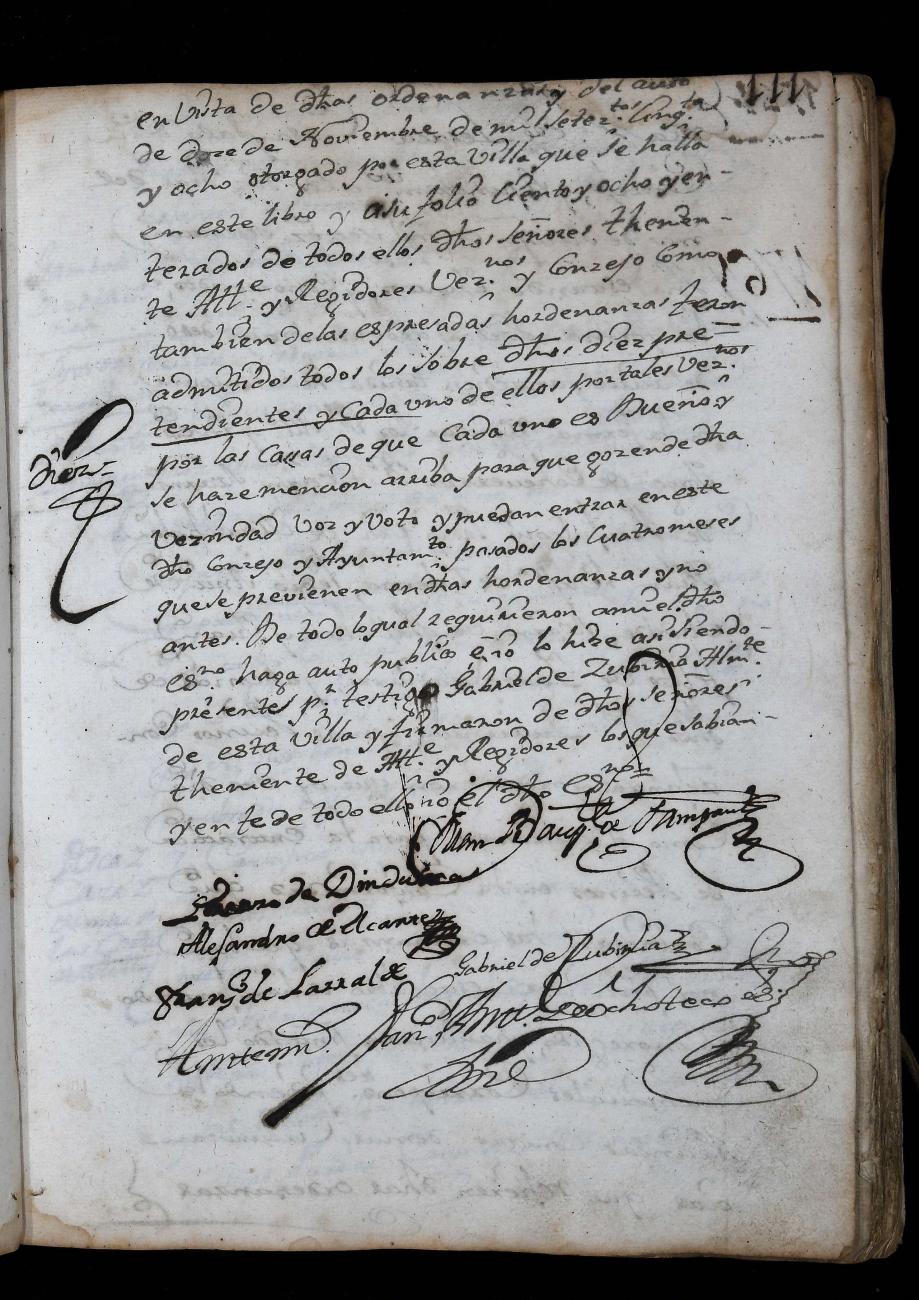 111
en Vista de dhas ordenanzas y del auto
de doze de Noviembre de mil setez.tos cinq.ta
y ocho otorgado por esta Villa que se halla
en este libro y a su folio Ciento y ocho y en-
terados de todos ellos dhos señores thenien-
te Alt.e y Regidores Vez.nos y Conzejo Como
tambien de las espresadas hordenanzas fueron
admitidos todos los sobre dhos diez pre=
tendientes y Cada uno de ellos por tales Vez.nos
por las Casas de que Cada uno es Dueño, y
se haze mencion arriba para que gozen de dha
vezindad voz y voto y puedan entrar en este
dho Conzejo y Ayuntam.to pasados los Cuatro meses
que se previenen en dhas hordenanzas y no
antes. De todo lo qual requirieron a mi el dho
es.no haga auto publico e yo lo hize asi siendo-
presentes p.r testigo Gabriel de Zubiria Alm.te
de esta Villa y firmaron de dhos señores
theniente de Alt.e y Regidores los que sabian-
y en fe de todo ello yo el dho es.no=
diez=
Juan Bauq. de
de
Alesandro de Elcano
Fran.co de Larralde
Gabriel de Zubiria
Antemi. Juan Ochoteco es.no